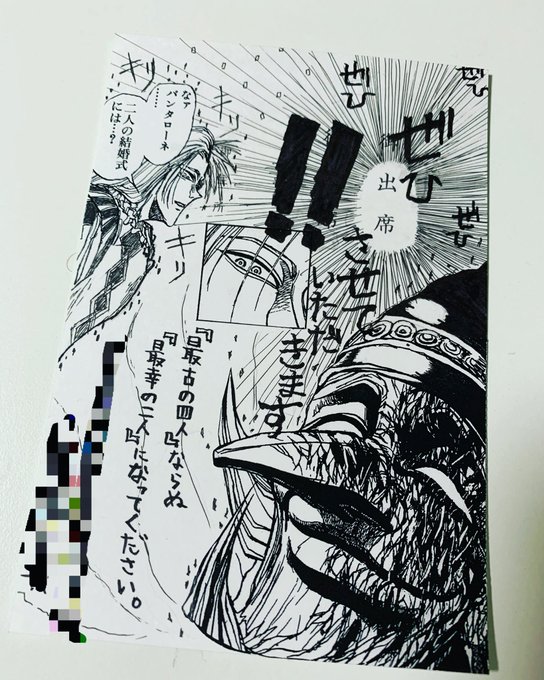 ぜひ
ぜひ
ぜひ
ぜひ
出席
させて
いただ
きます
!!
キリ
キリ
キリ
なァ
パンタローネ
……
二人の結婚式
には…?
『最古の四人』ならぬ
『最幸の二人』になってください。